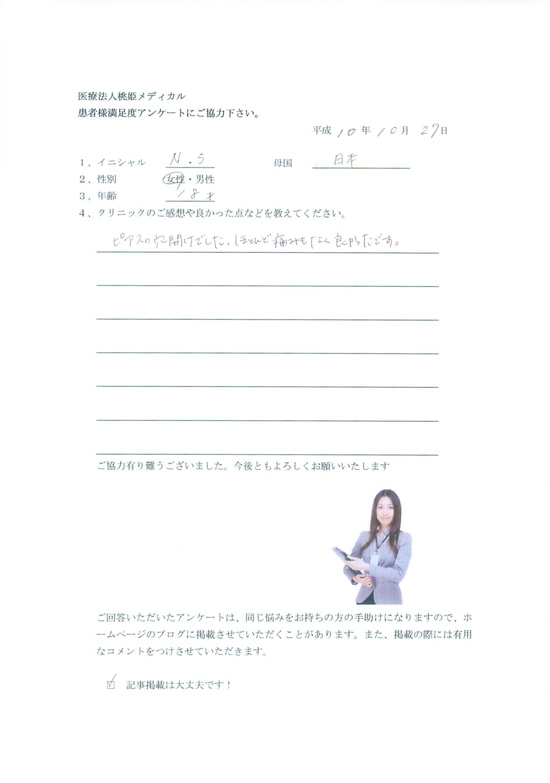 医療法人桃姫メディカル
患者様満足度アンケートにご協力下さい。
平成 10 年 10 月 27 日
1、イニシャル N.S 母国 日本
2、性別 女性・男性
3、年齢 18才
4、クリニックのご感想や良かった点などを教えてください。
ピアスの穴開けでした、ほとんど痛みもなく良かったです。
ご協力有り難うございました。今後ともよろしくお願いいたします
ご回答いただいたアンケートは、同じ悩みをお持ちの方の手助けになりますので、ホ
ームページのブログに掲載させていただくことがあります。また、掲載の際には有用
なコメントをつけさせていただきます。
☑ 記事掲載は大丈夫です！